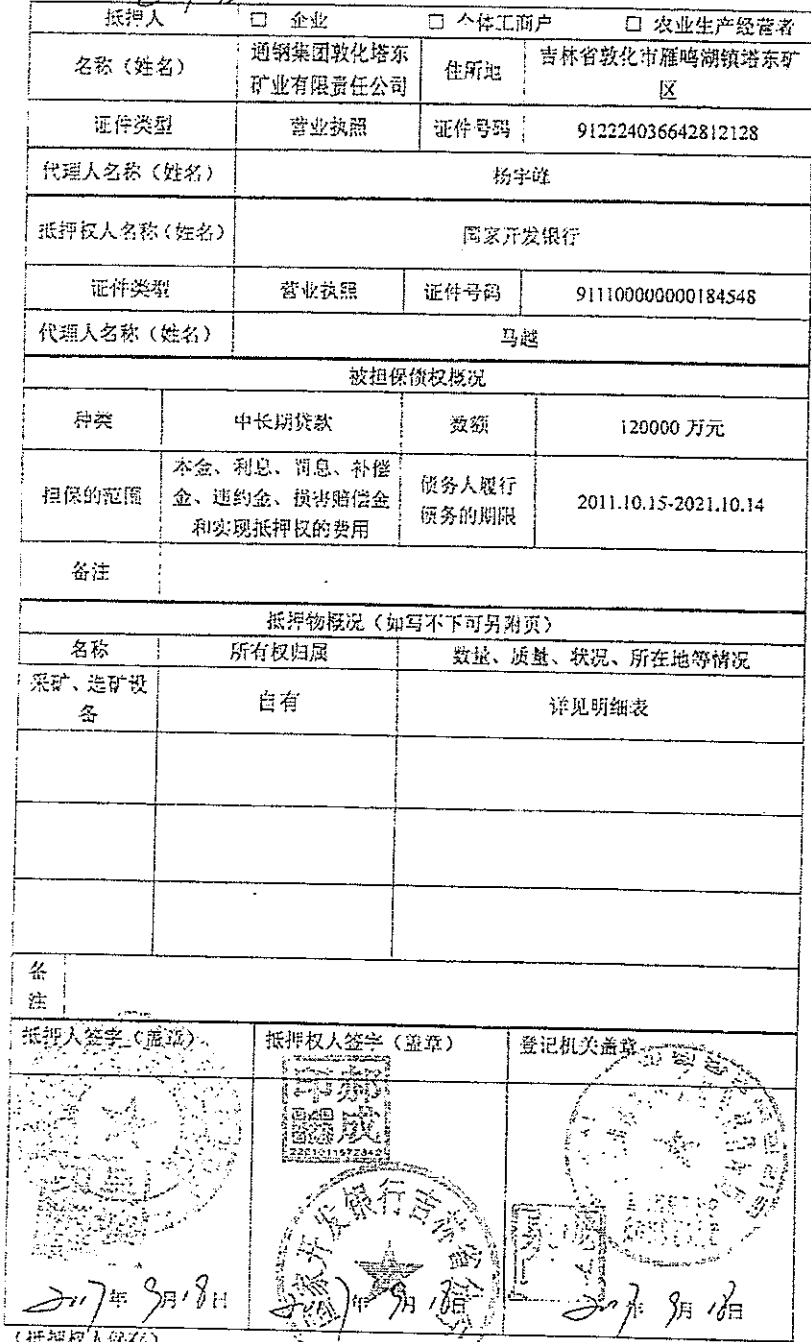 抵押人 □ 企业 □ 个体工商户 □ 农业生产经营者
名称（姓名） 通钢集团敦化塔东矿业有限责任公司 住所地 吉林省敦化市雁鸣湖镇塔东矿区
证件类型 营业执照 证件号码 912224036642812128
代理人名称（姓名） 杨宇峰
抵押权人名称（姓名） 国家开发银行
证件类型 营业执照 证件号码 911100000000184548
代理人名称（姓名） 马越
被担保债权概况
种类 中长期贷款 数额 120000 万元
担保的范围 本金、利息、罚息、补偿金、违约金、损害赔偿金和实现抵押权的费用 债务人履行债务的期限 2011.10.15-2021.10.14
备注
抵押物概况（如写不下可另附页）
名称 所有权归属 数量、质量、状况、所在地等情况
采矿、选矿设备 自有 详见明细表
备注
抵押人签字（盖章） 抵押权人签字（盖章） 登记机关盖章
郝成
2201011572842
国家开发银行吉林省分
2017年 9月18日 2017年 9月18日 2017年 9月18日